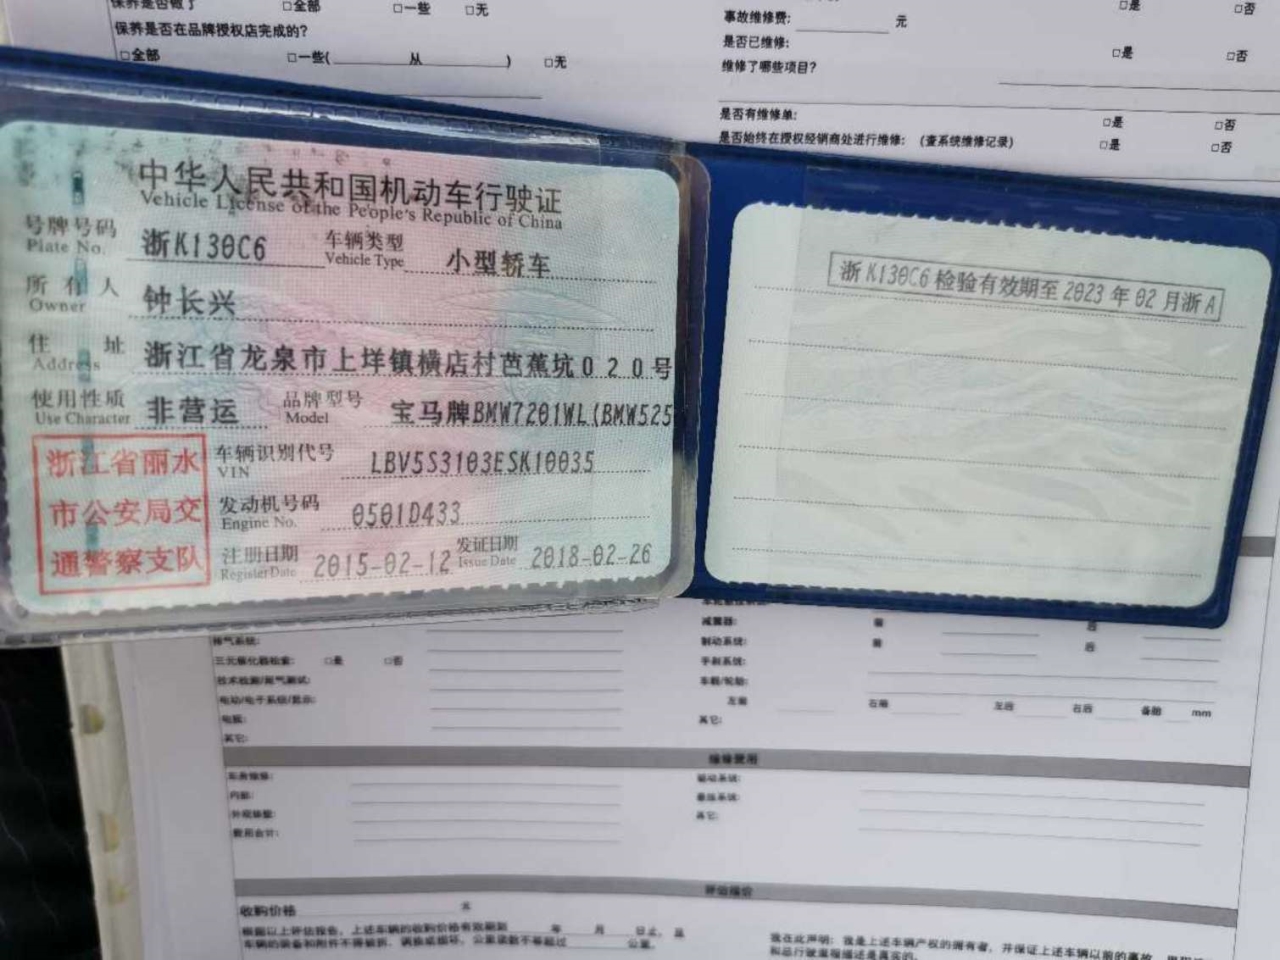 保养是否做了 □全部 □一些 □无
保养是否在品牌授权店完成的?
□全部 □一些(________从________) □无
事故维修费:________元
□是 □否
是否已维修: □是 □否
维修了哪些项目?
是否有维修单: □是 □否
是否始终在授权经销商处进行维修:(查系统维修记录) □是 □否
中华人民共和国机动车行驶证
Vehicle License of the People's Republic of China
号牌号码 浙K130C6 车辆类型 小型轿车
Plate No. Vehicle Type
所有人 钟长兴
Owner
住址 浙江省龙泉市上垟镇横店村芭蕉坑020号
Address
使用性质 非营运 品牌型号 宝马牌BMW7201WL(BMW525
Use Character Model
浙江省丽水
市公安局交
通警察支队
车辆识别代号 LBV5S3103ESK10035
VIN
发动机号码 0501D433
Engine No.
注册日期 2015-02-12 发证日期 2018-02-26
Register Date Issue Date
浙K130C6检验有效期至2023年02月浙A
排气系统:
三元催化器检索: □是 □否
技术检测/尾气测试:
电动/电子系统/显示:
电脑:
其它:
减震器: 前 后
制动系统: 前 后
手刹系统:
车毂/轮胎:
左前 右前 左后 右后 备胎 mm
其它:
维修费用
车身维修:
内部:
费用合计:
驱动系统:
其它:
评估报价
收购价格________元
根据以上评估报告,上述车辆的收购价格有效期到____年____月____日止,且
车辆的装备和附件不得被拆、调换或损坏,公里读数不等超过________公里。
我在此声明:我是上述车辆产权的拥有者,并保证上述车辆以前的事故
和总行驶里程描述是真实的。